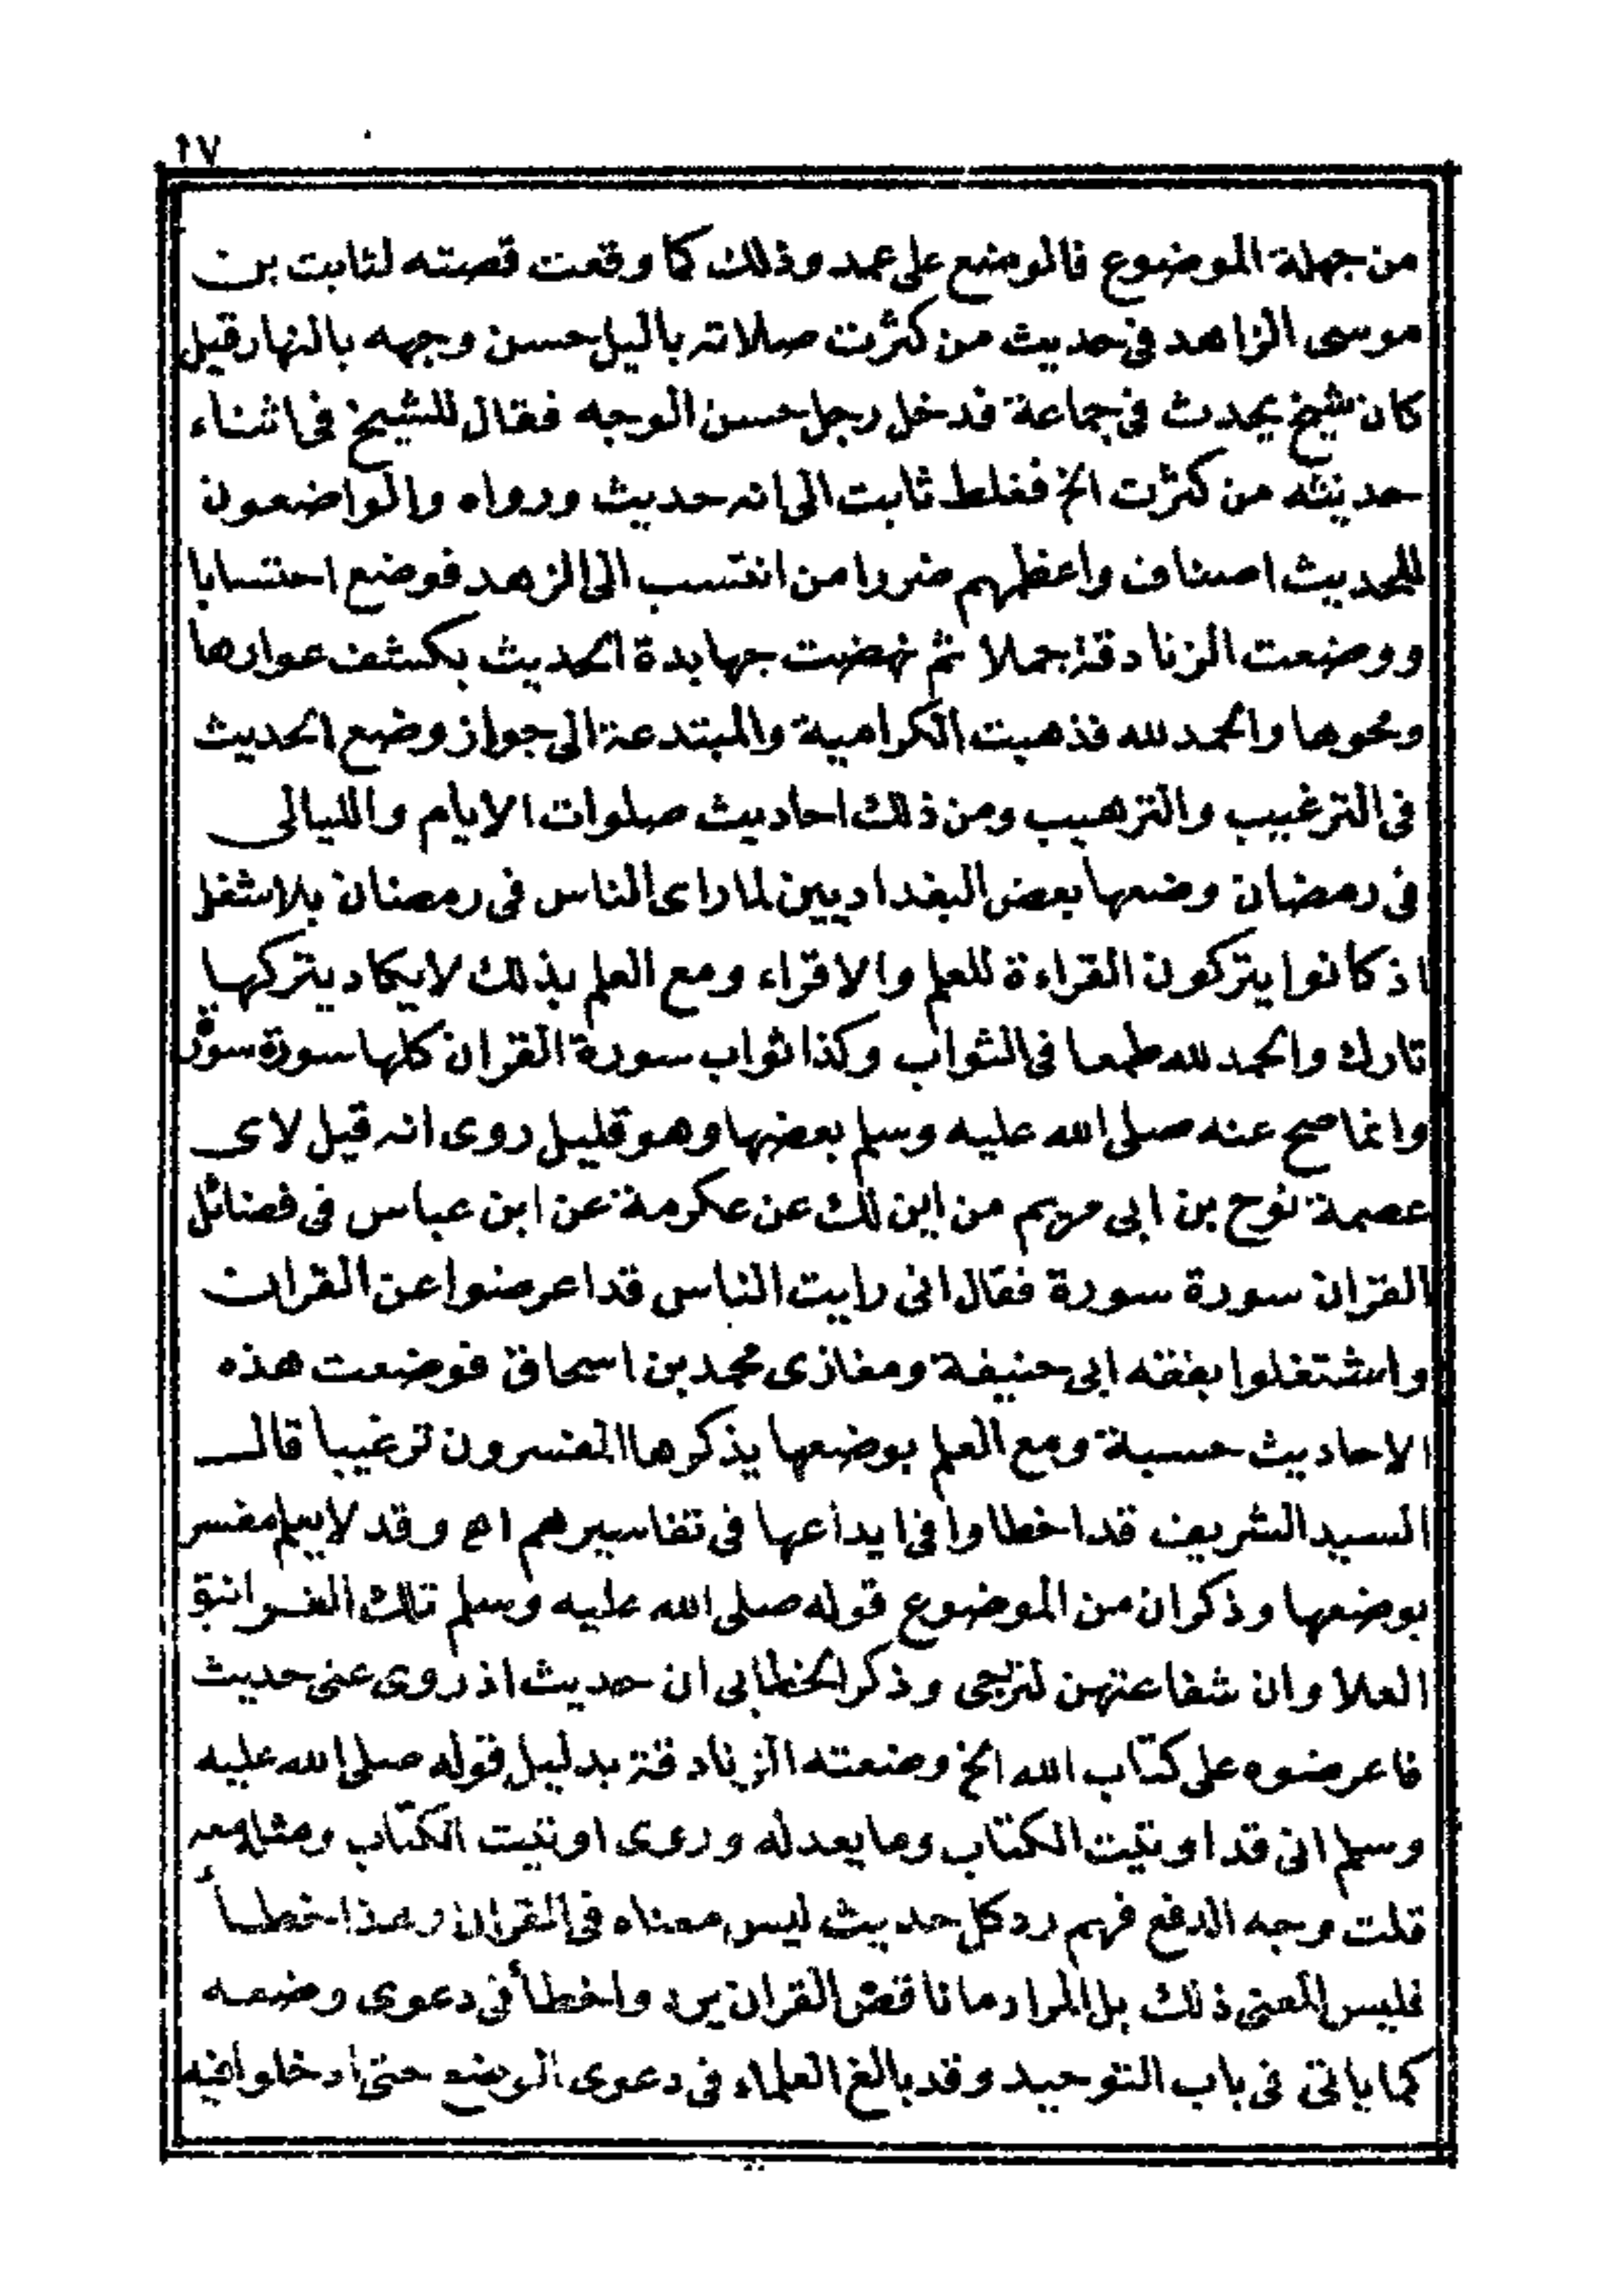 ١٧
من جملة الموضوع فالموضع على عمد وذلك كما وقعت قصته لثابت بن
موسى الزاهد في حديث من كثرت صلاته باليل حسن وجهه بالنهار قيل
كان شيخ يحدث في جماعة فدخل رجل حسن الوجه فقال للشيخ في اثناء
حديثه من كثرت الخ فغلط ثابت الى انه حديث ورواه والواضعون
للحديث اصناف واعظمهم ضررا من انتسب الى الزهد فوضع احتسابا
ووضعت الزنادقة جملا ثم نهضت جهابدة الحديث بكشف عوارها
ومحوها والحمد لله فذهبت الكرامية والمبتدعة الى جواز وضع الحديث
في الترغيب والترهيب ومن ذلك احاديث صلوات الايام والليالي
في رمضان وضعها بعض البغداديين لما راى الناس في رمضان بلا شغل
اذ كانوا يتركون القراءة للعلم والاقراء ومع العلم بذلك لا يكاد يتركها
تارك والحمد لله طمعا في الثواب وكذا ثواب سورة القران كلها سورة سورة
وانما صح عنه صلى الله عليه وسلم بعضها وهو قليل روى انه قيل لاى
عصمة نوح بن ابي مريم من اين لك عن عكرمة عن ابن عباس في فضائل
القران سورة سورة فقال انى رايت الناس قد اعرضوا عن القران
واشتغلوا بفقه ابى حنيفة ومغازى محمد بن اسحاق فوضعت هذه
الاحاديث حسبة ومع العلم بوضعها يذكرها المفسرون ترغيبا قال
السيد الشريف قد اخطاوا في ايداعها في تفاسيرهم اه وقد لا يعلم مفسر
بوضعها وذكر ان من الموضوع قوله صلى الله عليه وسلم تلك الغرانيق
العلا وان شفاعتهن لترتجى وذكر الخطابى ان حديث اذ روى عنى حديث
فاعرضوه على كتاب الله الخ وضعته الزنادقة بدليل قوله صلى الله عليه
وسلم انى قد اوتيت الكتاب وما يعدله وروى اوتيت الكتاب ومثله معه
قلت وجه الدفع فهم رد كل حديث ليس معناه في القران وهذا خطأ
فليس المعنى ذلك بل المراد ما ناقض القران يرد واخطأ في دعوى وضعه
كما ياتى في باب التوحيد وقد بالغ العلماء في دعوى الوضع حتى ادخلوا فيه